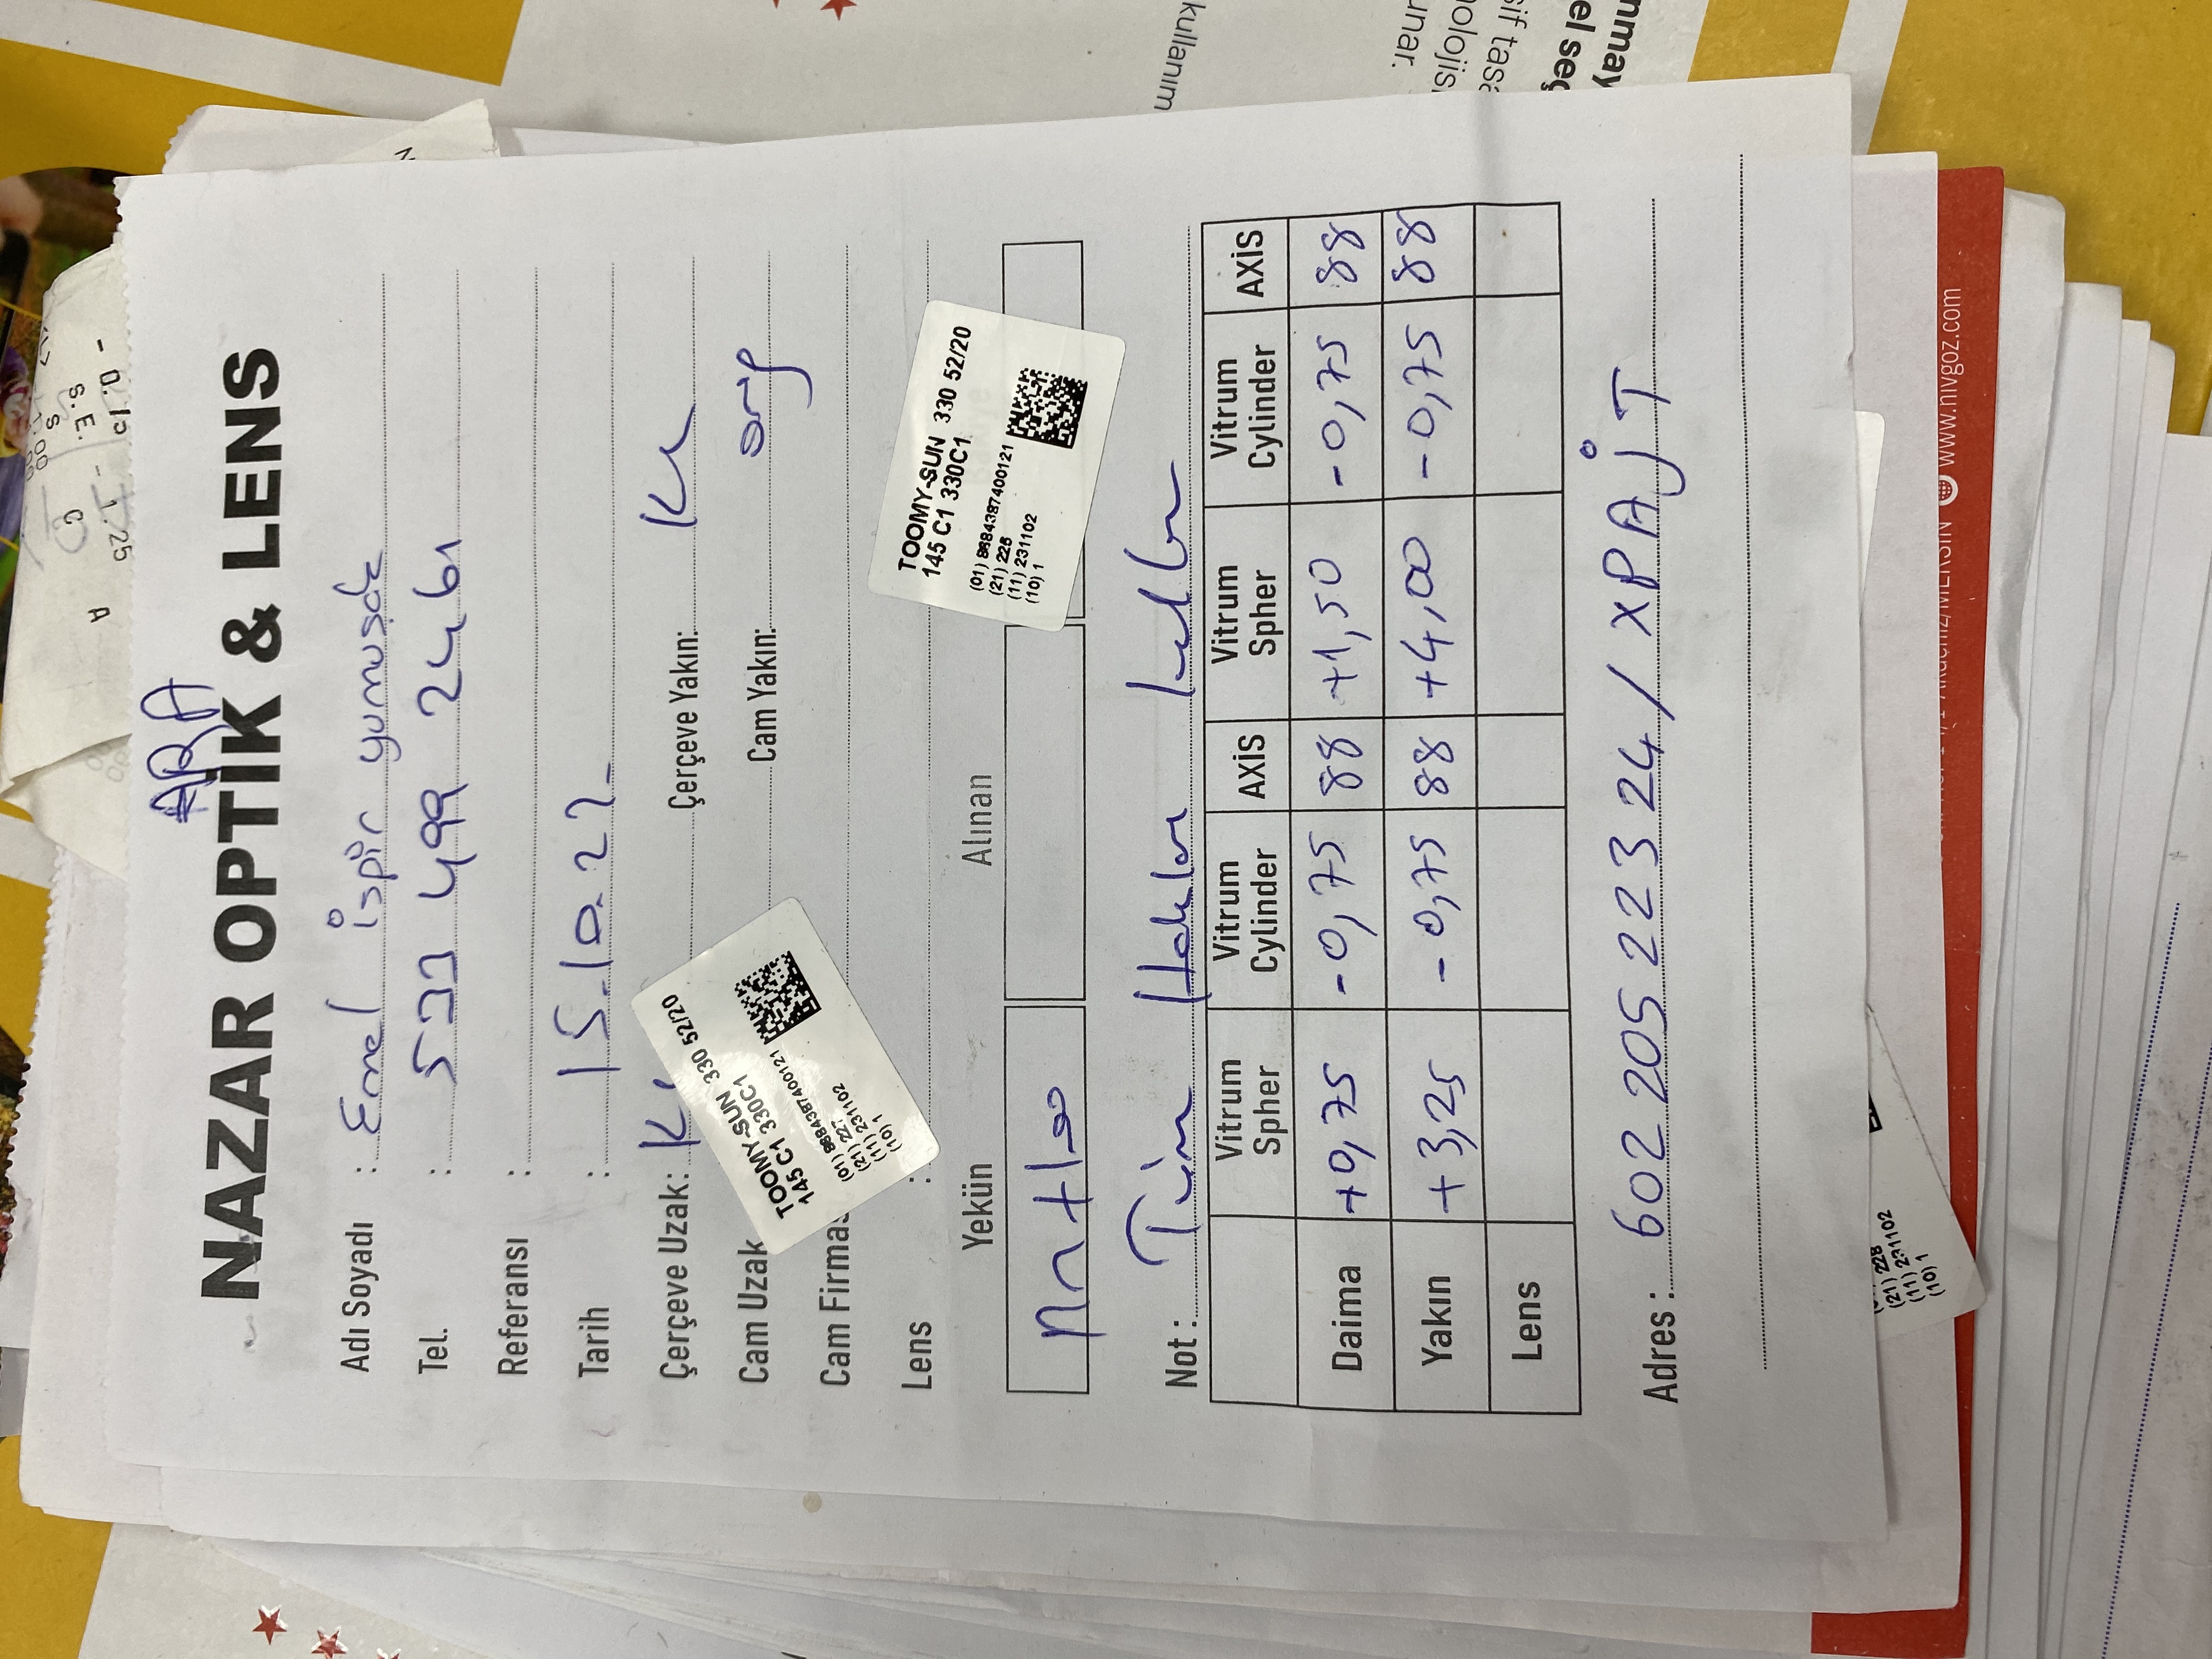 1.00
S
S.E. C A
- 0.15 - 1.25
ARA
NAZAR OPTİK & LENS
Adı Soyadı : Emel ispir yumuşak
Tel. : 533 499 2461
Referansı :
Tarih : 15.10.22
Çerçeve Uzak: Çerçeve Yakın:
Cam Uzak Cam Yakın: org
Cam Firmas
Lens :
TOOMY-SUN 330 52/20
145 C1 330C1
(01) 8684387400121
(21) 227
(11) 231102
(10) 1
TOOMY-SUN 330 52/20
145 C1 330C1
(01) 8684387400121
(21) 226
(11) 231102
(10) 1
Yekün Alınan
Not : Tüm
Vitrum Spher Vitrum Cylinder AXİS Vitrum Spher Vitrum Cylinder AXİS
Daima +0,75 -0,75 88 +1,50 -0,75 88
Yakın +3,25 -0,75 88 +4,00 -0,75 88
Lens
Adres : 602 205 223 24 / XPAJT
(21) 228
(11) 231102
(10) 1
Akdeniz/MERSİN www.nivgoz.com
kullanım